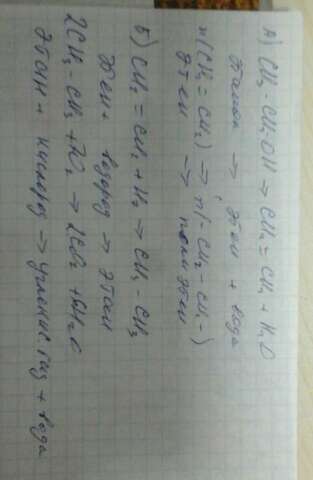 А) CH3-CH2OH → CH2=CH2 + H2O
Этанол → Этен + вода
n(CH2=CH2) → n(-CH2-CH2-)
этен → полиэтен
Б) CH2=CH2+H2 → CH3-CH3
Этен+ водород → этан
2CH3-CH3+7O2 → 4CO2 +6H2O
Этан + кислород → углекис. газ + вода